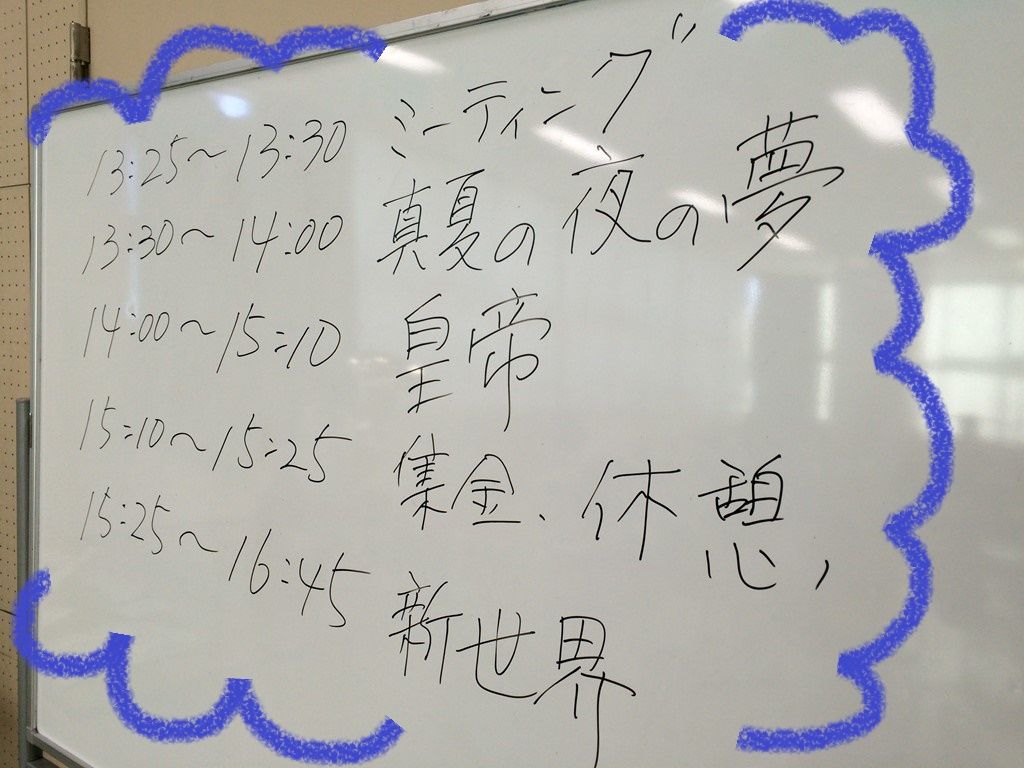 13:25～13:30 ミーティング
13:30～14:00 真夏の夜の夢
14:00～15:10 皇帝
15:10～15:25 集金、休憩
15:25～16:45 新世界